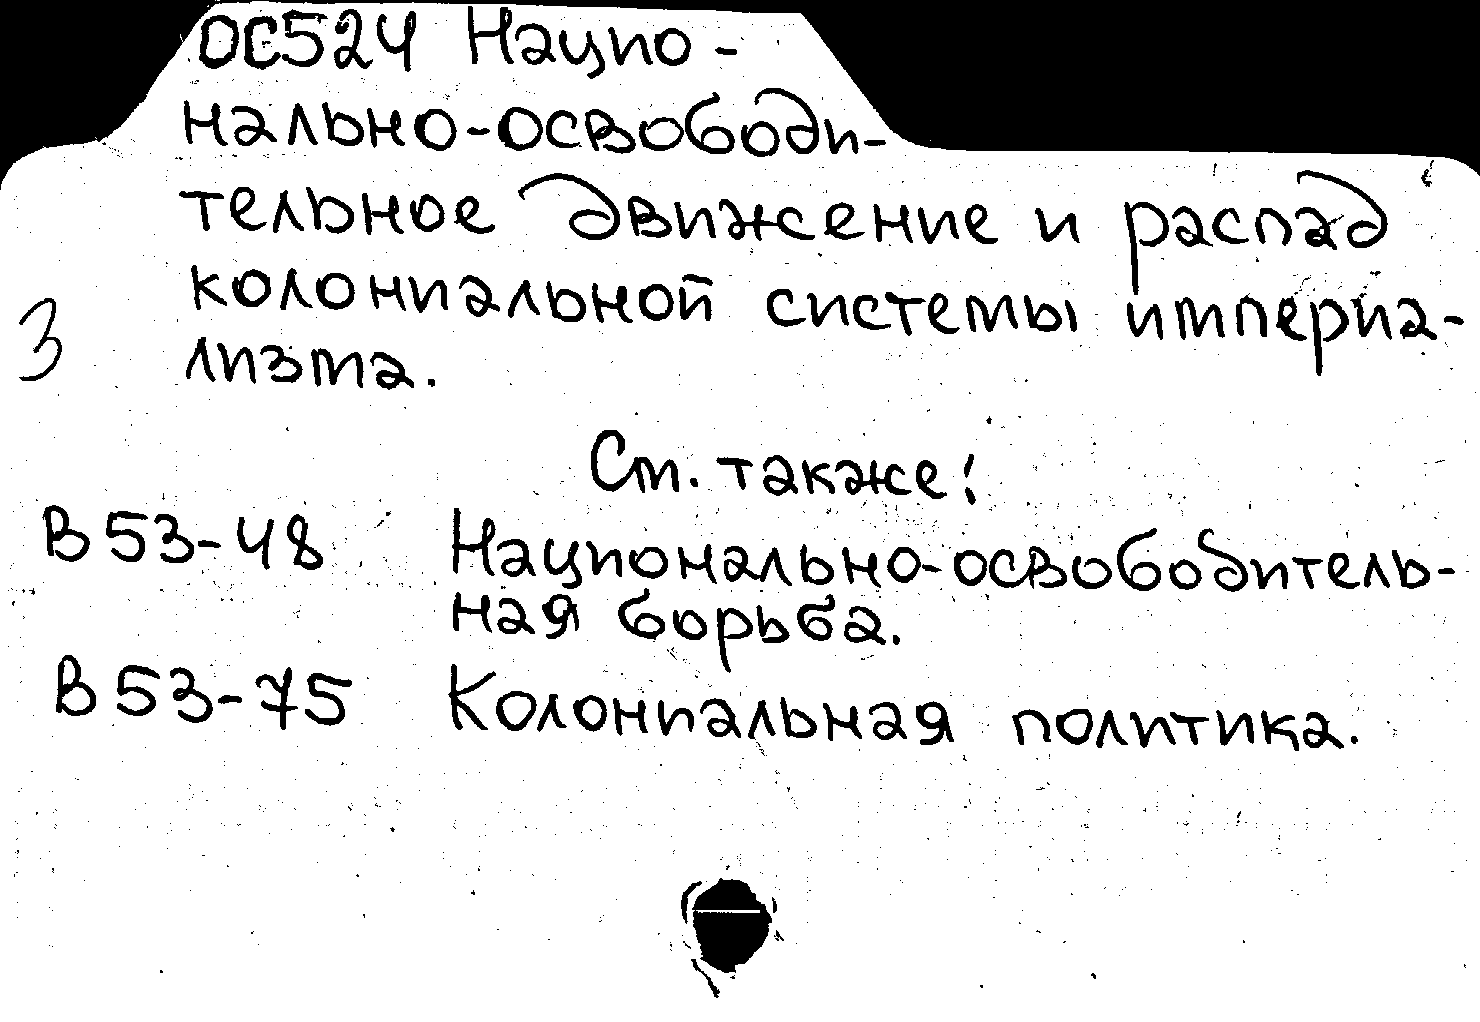 ОС524 Нацио-
нально-освободи-
тельное движение и распад
колониальной системы империа-
лизма.
3
См. также:
В53-48 Национально-освободитель-
ная борьба.
В53-75 Колониальная политика.